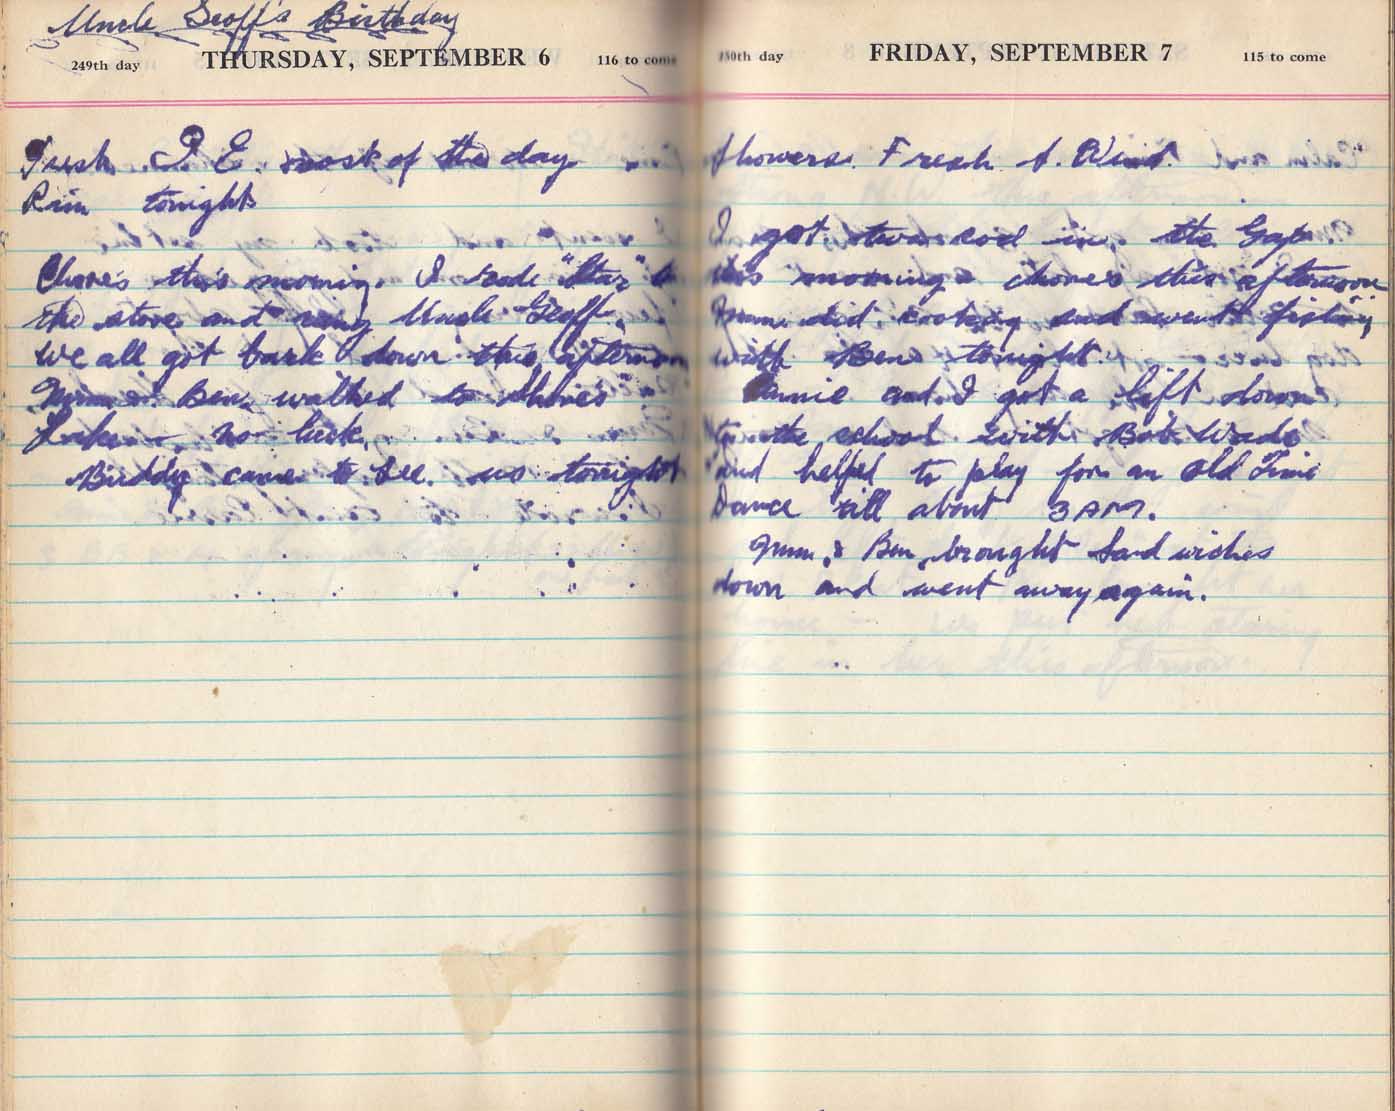 Uncle Geoff's Birthday
249th day THURSDAY, SEPTEMBER 6 116 to come
Fresh S. E. most of the day
Rain tonight
Chores this morning. I rode "Star" to
the store and rang Uncle Geoff.
We all got bark down this afternoon
Mum & Ben walked to
no luck.
Buddy came to see us tonight
250th day FRIDAY, SEPTEMBER 7 115 to come
Showers. Fresh S. Wind
I got two cod in the Gap
this morning & chores this afternoon
Mum did cooking and went fishing
with Ben tonight.
and I got a lift down
to the school with Bob Wade
and helped to play for an Old Time
Dance till about 3 AM.
Mum & Ben brought Sandwiches
down and went away again.